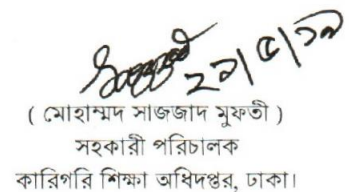 ২১/৫/১৯
( মোহাম্মদ সাজজাদ মুফতী )
সহকারী পরিচালক
কারিগরি শিক্ষা অধিদপ্তর, ঢাকা।